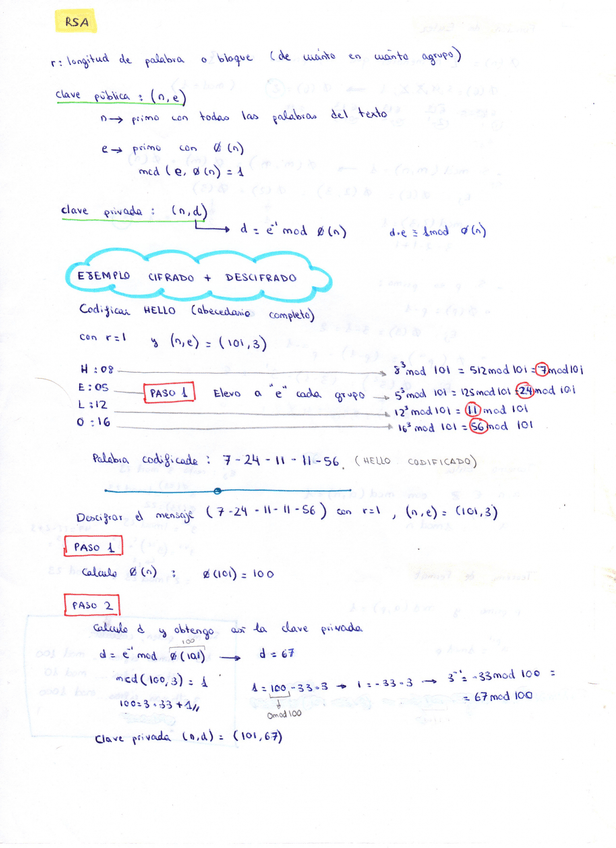 RSA
r: longitud de palabra o bloque (de cuánto en cuánto agrupo)
clave pública : (n,e)
n → primo con todas las palabras del texto
e → primo con Ø(n)
mcd (e, Ø(n)) = 1
clave privada : (n,d)
d = e⁻¹ mod Ø(n) d·e ≡ 1mod Ø(n)
EJEMPLO CIFRADO + DESCIFRADO
Codificar HELLO (abecedario completo)
con r=1 y (n,e) = (101,3)
H : 08 8³ mod 101 = 512 mod 101 = 7 mod 101
E : 05 PASO 1 Elevo a "e" cada grupo 5³ mod 101 = 125 mod 101 = 24 mod 101
L : 12 12³ mod 101 = 11 mod 101
O : 16 16³ mod 101 = 56 mod 101
Palabra codificada : 7-24-11-11-56. (HELLO CODIFICADO)
Descifrar el mensaje (7-24-11-11-56) con r=1 , (n,e) = (101,3)
PASO 1
Calculo Ø(n) : Ø(101) = 100
PASO 2
Calculo d y obtengo así la clave privada
100
d = e⁻¹ mod Ø(101) → d = 67
mcd(100,3) = 1 1 = 100 - 33·3 → 1 = -33·3 → 3⁻¹ = -33 mod 100 =
100 = 3·33 + 1 = 67 mod 100
0 mod 100
Clave privada (n,d) = (101,67)